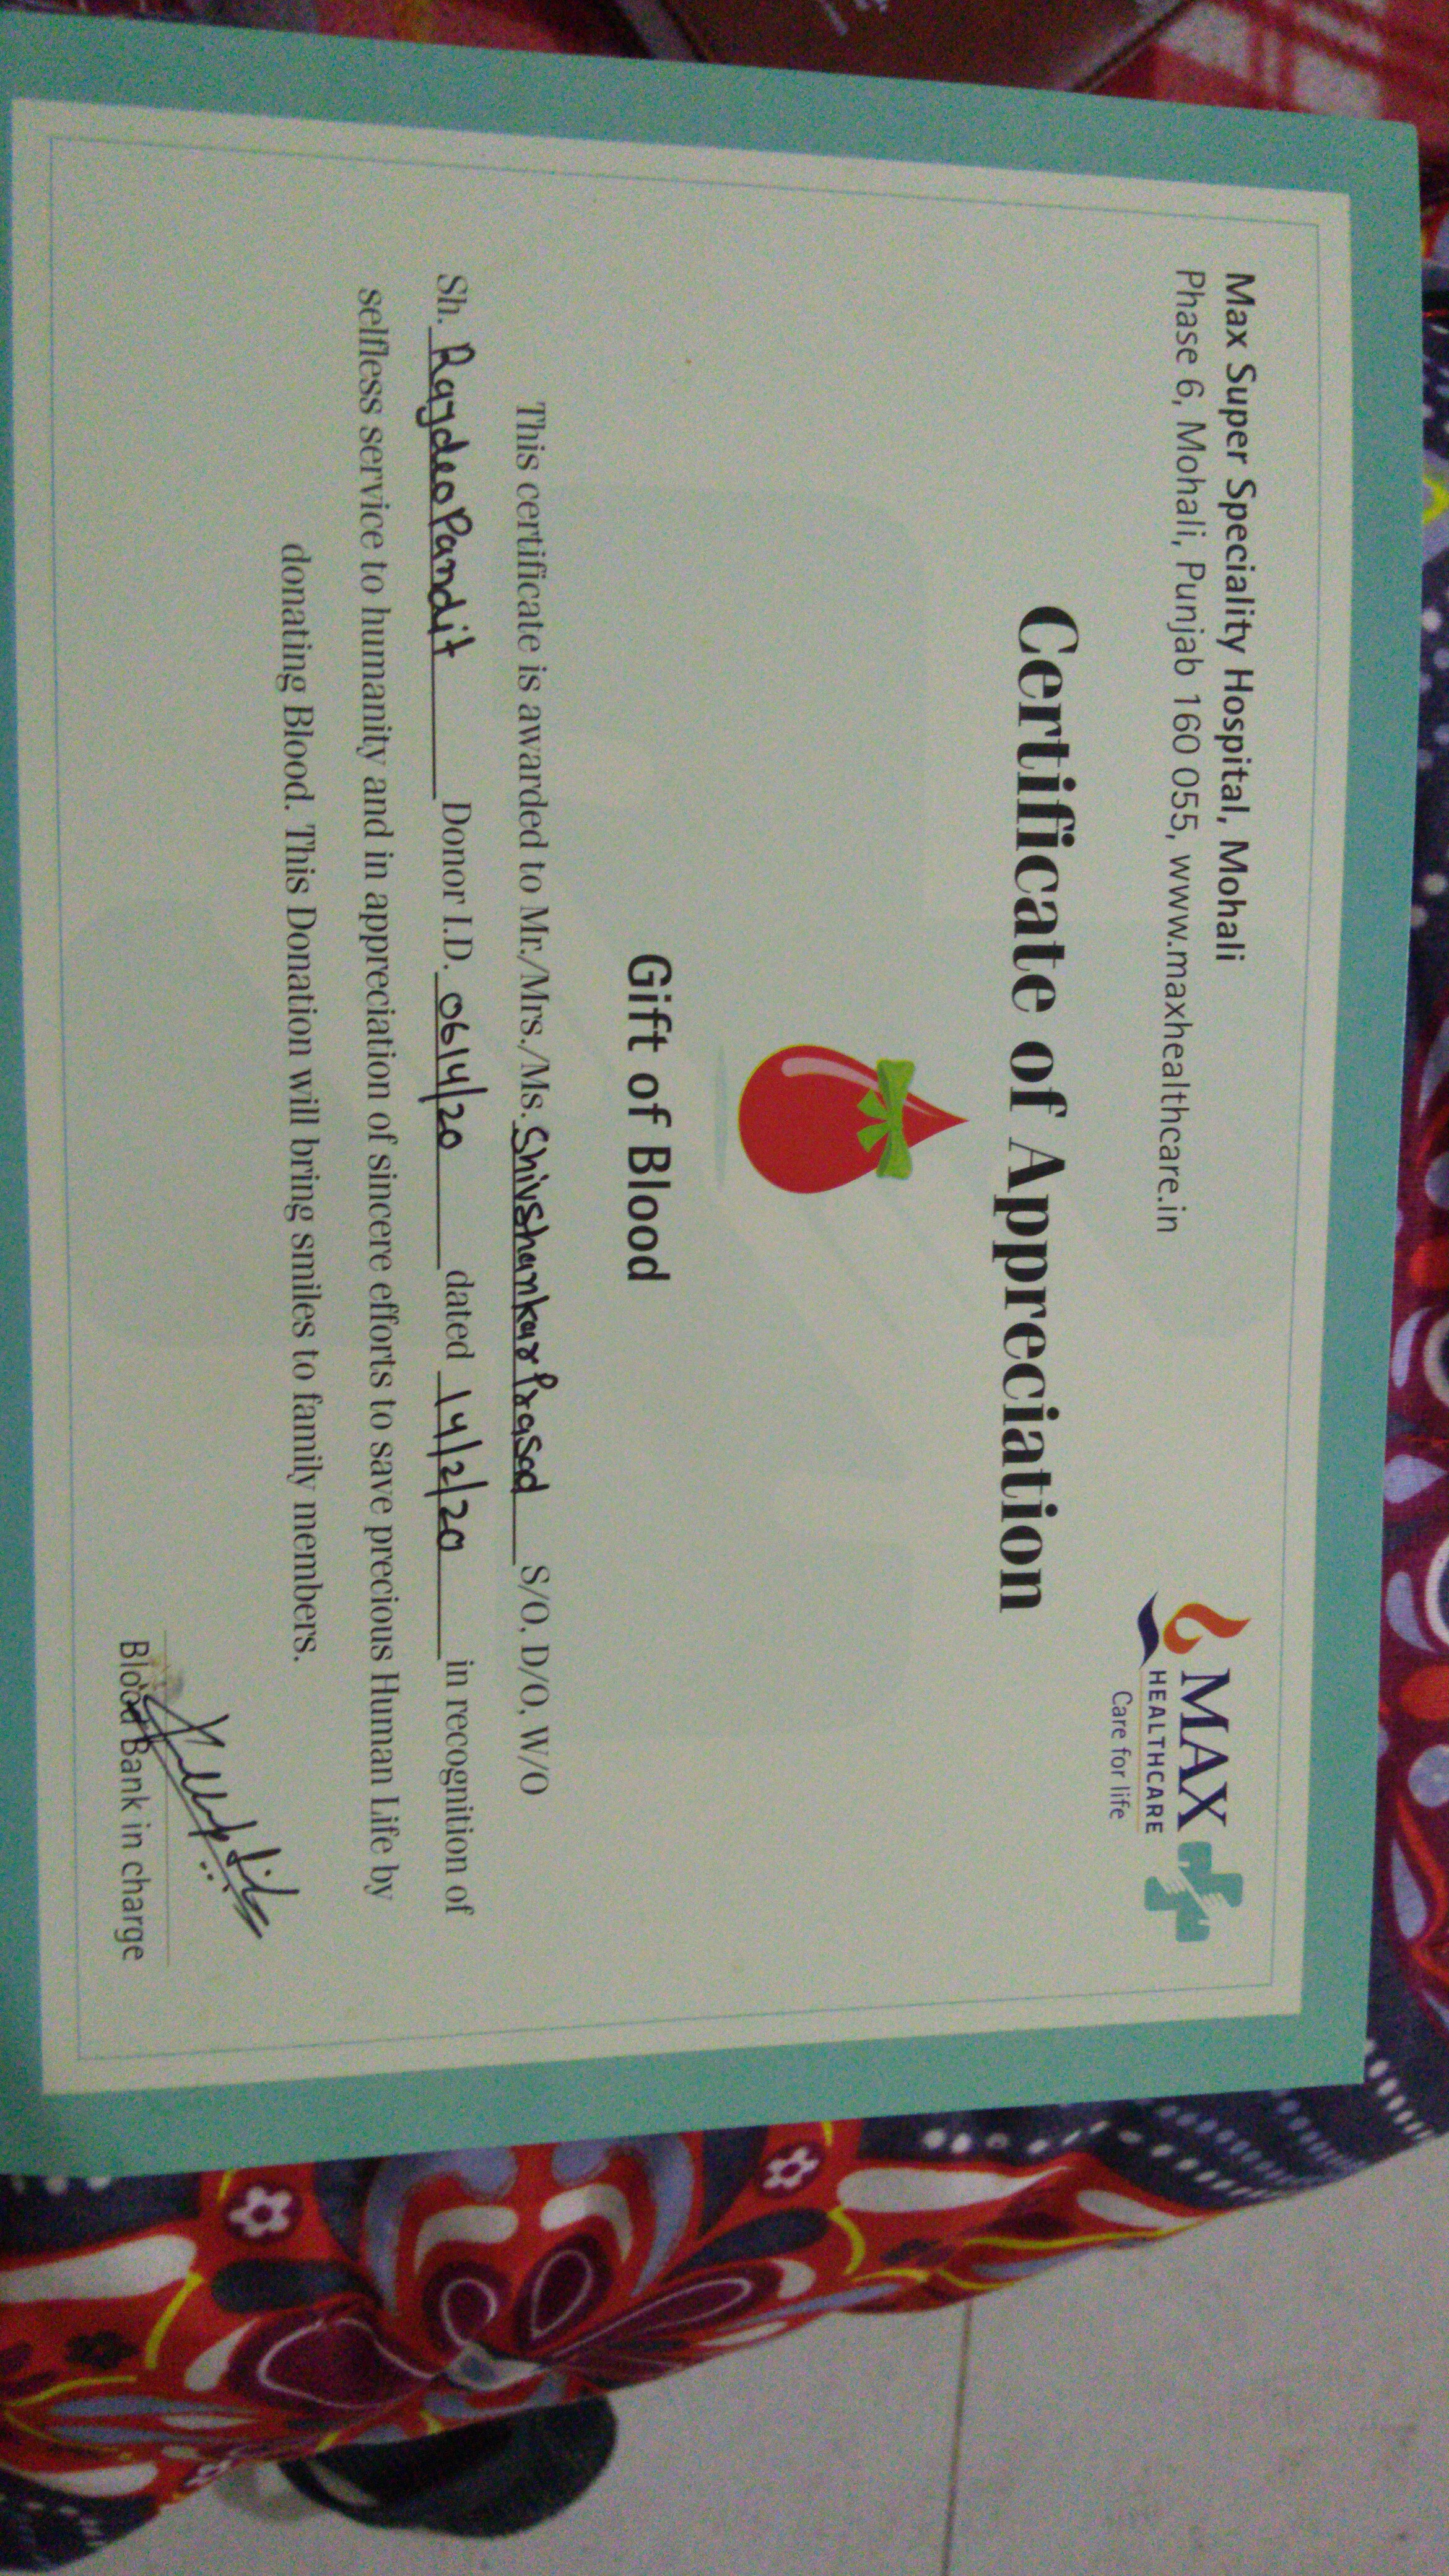 Max Super Speciality Hospital, Mohali
Phase 6, Mohali, Punjab 160 055, www.maxhealthcare.in
MAX
HEALTHCARE
Care for life
Certificate of Appreciation
Gift of Blood
This certificate is awarded to Mr./Mrs./Ms. Shivshankar Prasad S/O, D/O, W/O
Sh. Rajdeo Pandit Donor I.D. 0614/20 dated 14/2/20 in recognition of
selfless service to humanity and in appreciation of sincere efforts to save precious Human Life by
donating Blood. This Donation will bring smiles to family members.
Blood Bank in charge